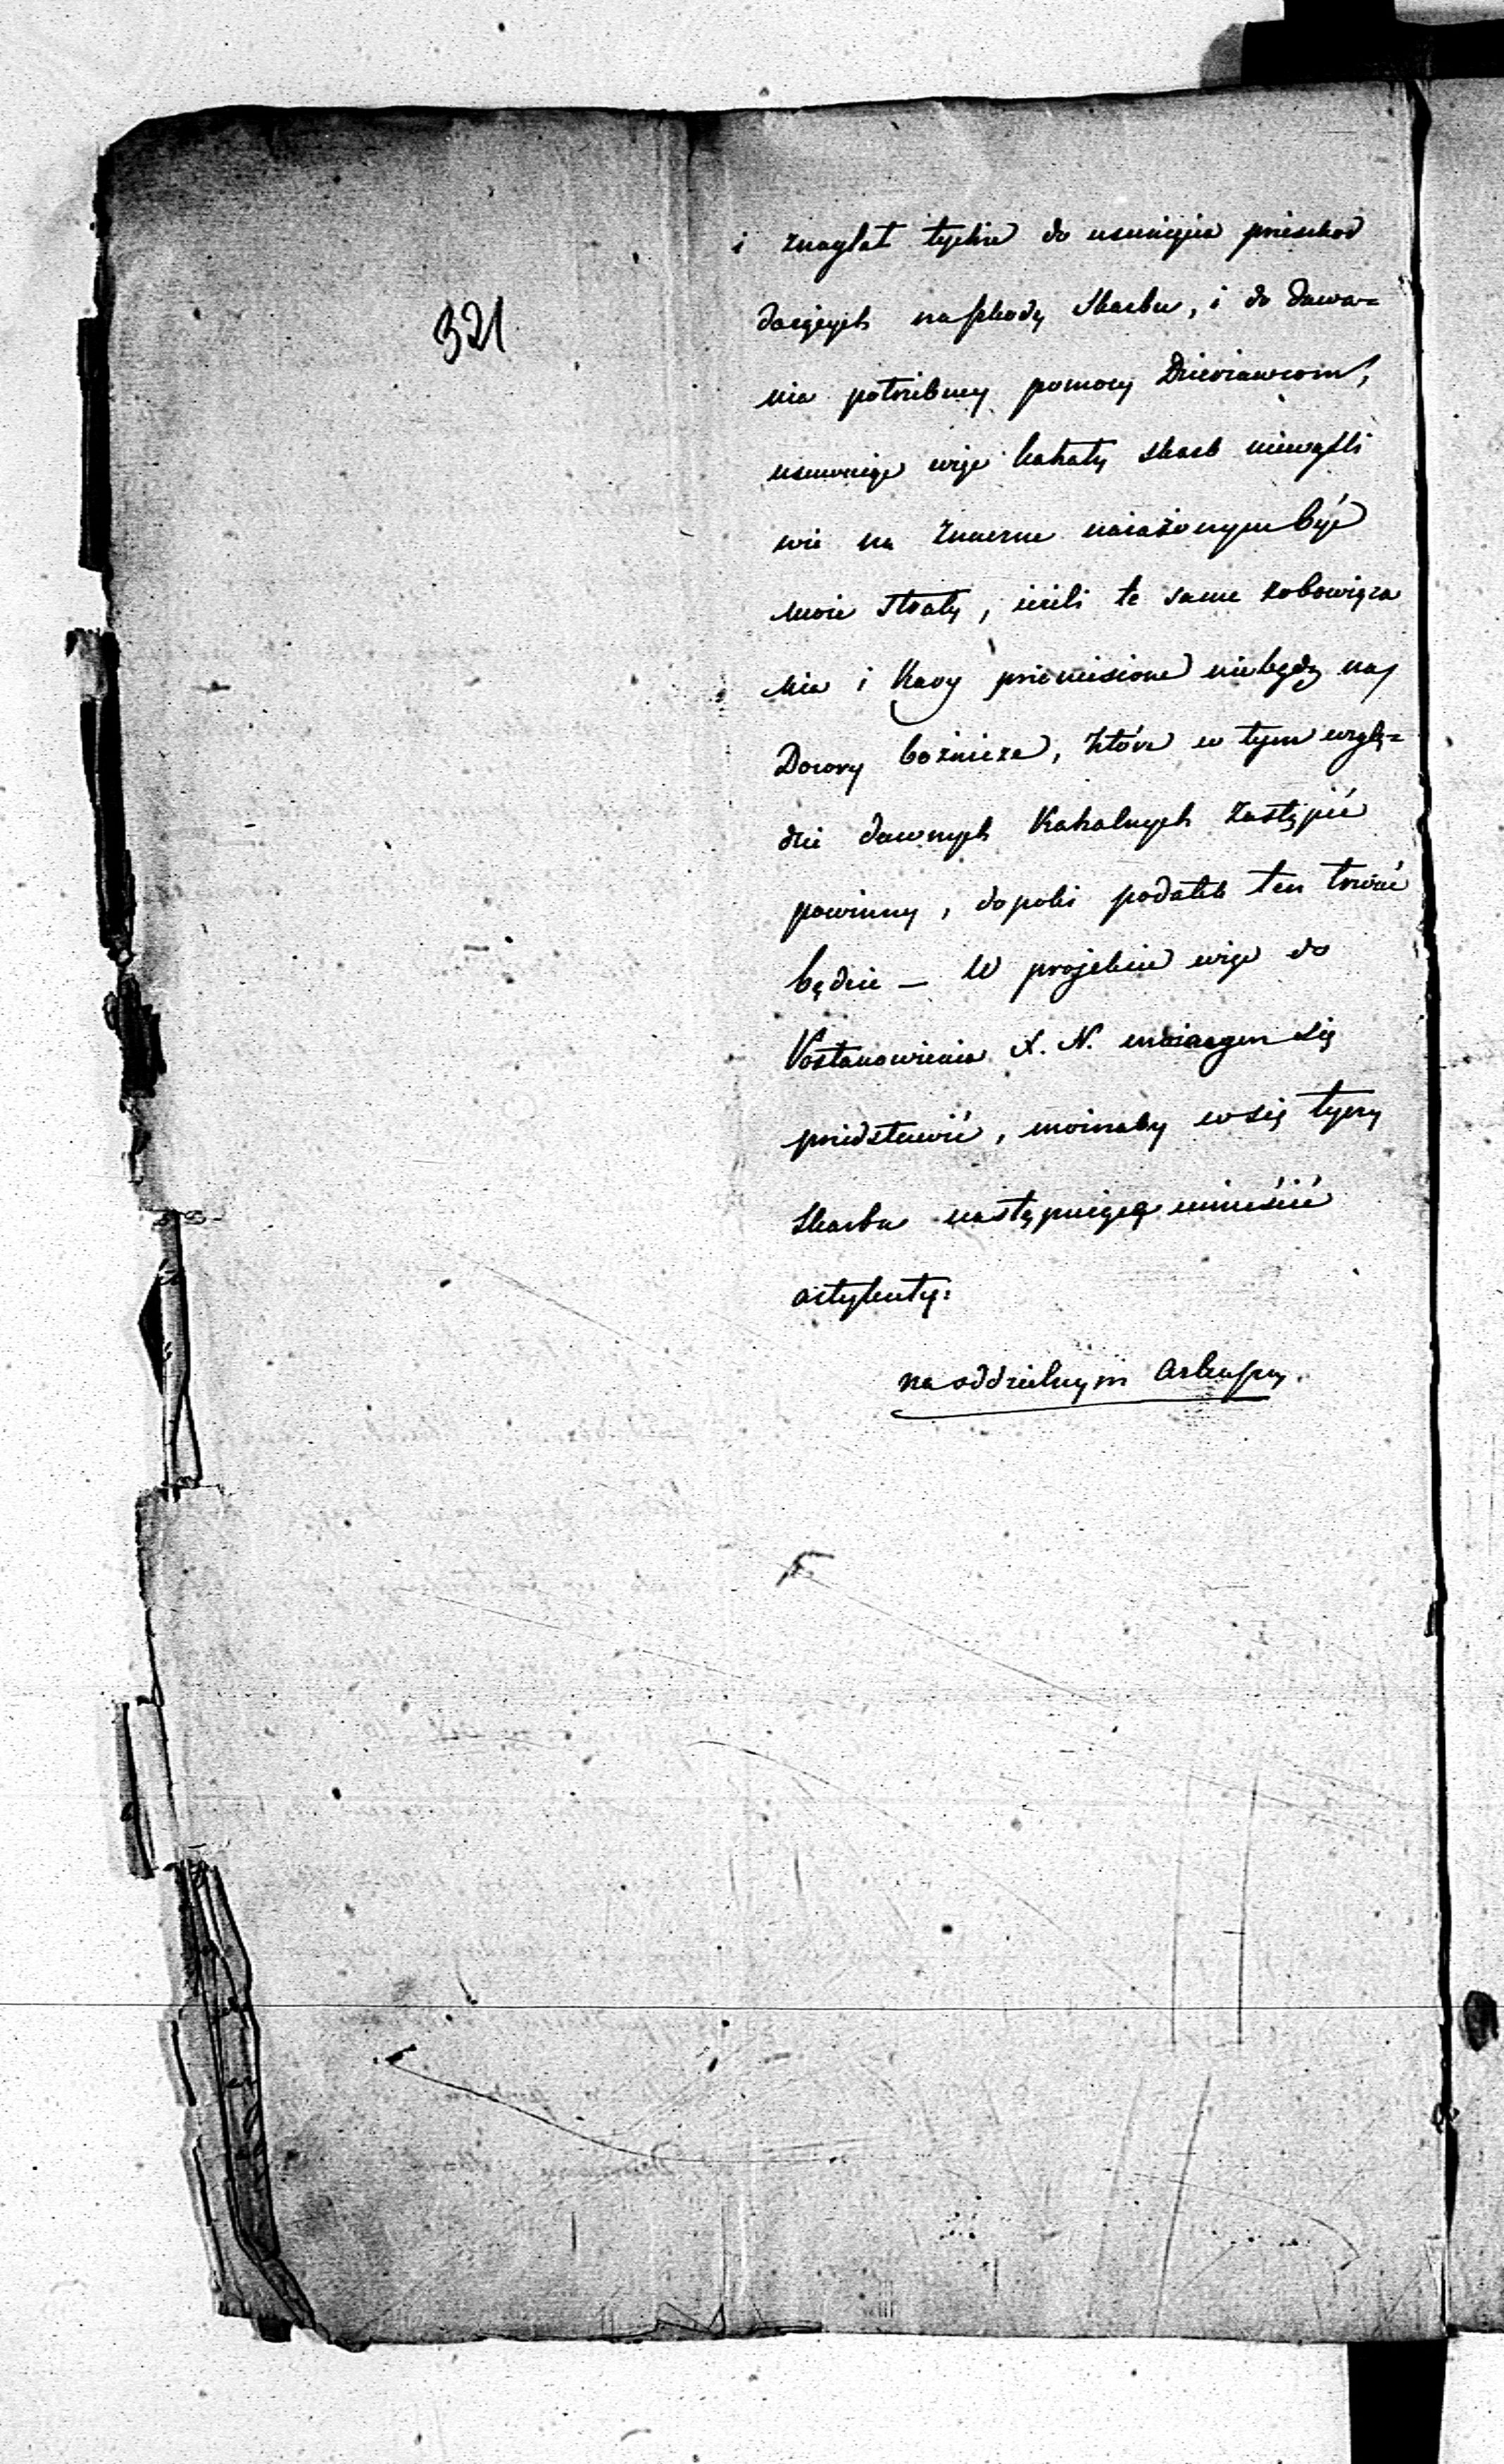 321
i znaglał tychże do usunięcia przeszkod
dążących na szkodę Skarbu, i do dawa=
nia potrzebney pomocy Dzierzawcom,
usunąwszy więc kahały skarb niewątpli
wie na znaczne narażonym być
może straty, ieżeli te same zobowiąza
nia i Kary przeniesione niebędą na
Dozory bożnicze, które w tym wzglę=
dzie dawnych Kahalnych zastąpić
powinny, dopóki podatek ten trwać
będzie — W projekcie więc do
Postanowienia X. N. maiącym się
przedstawić, możnaby względy
Skarbu następuiące umieścić
artykuły:
na oddzielnym Arkuszu.